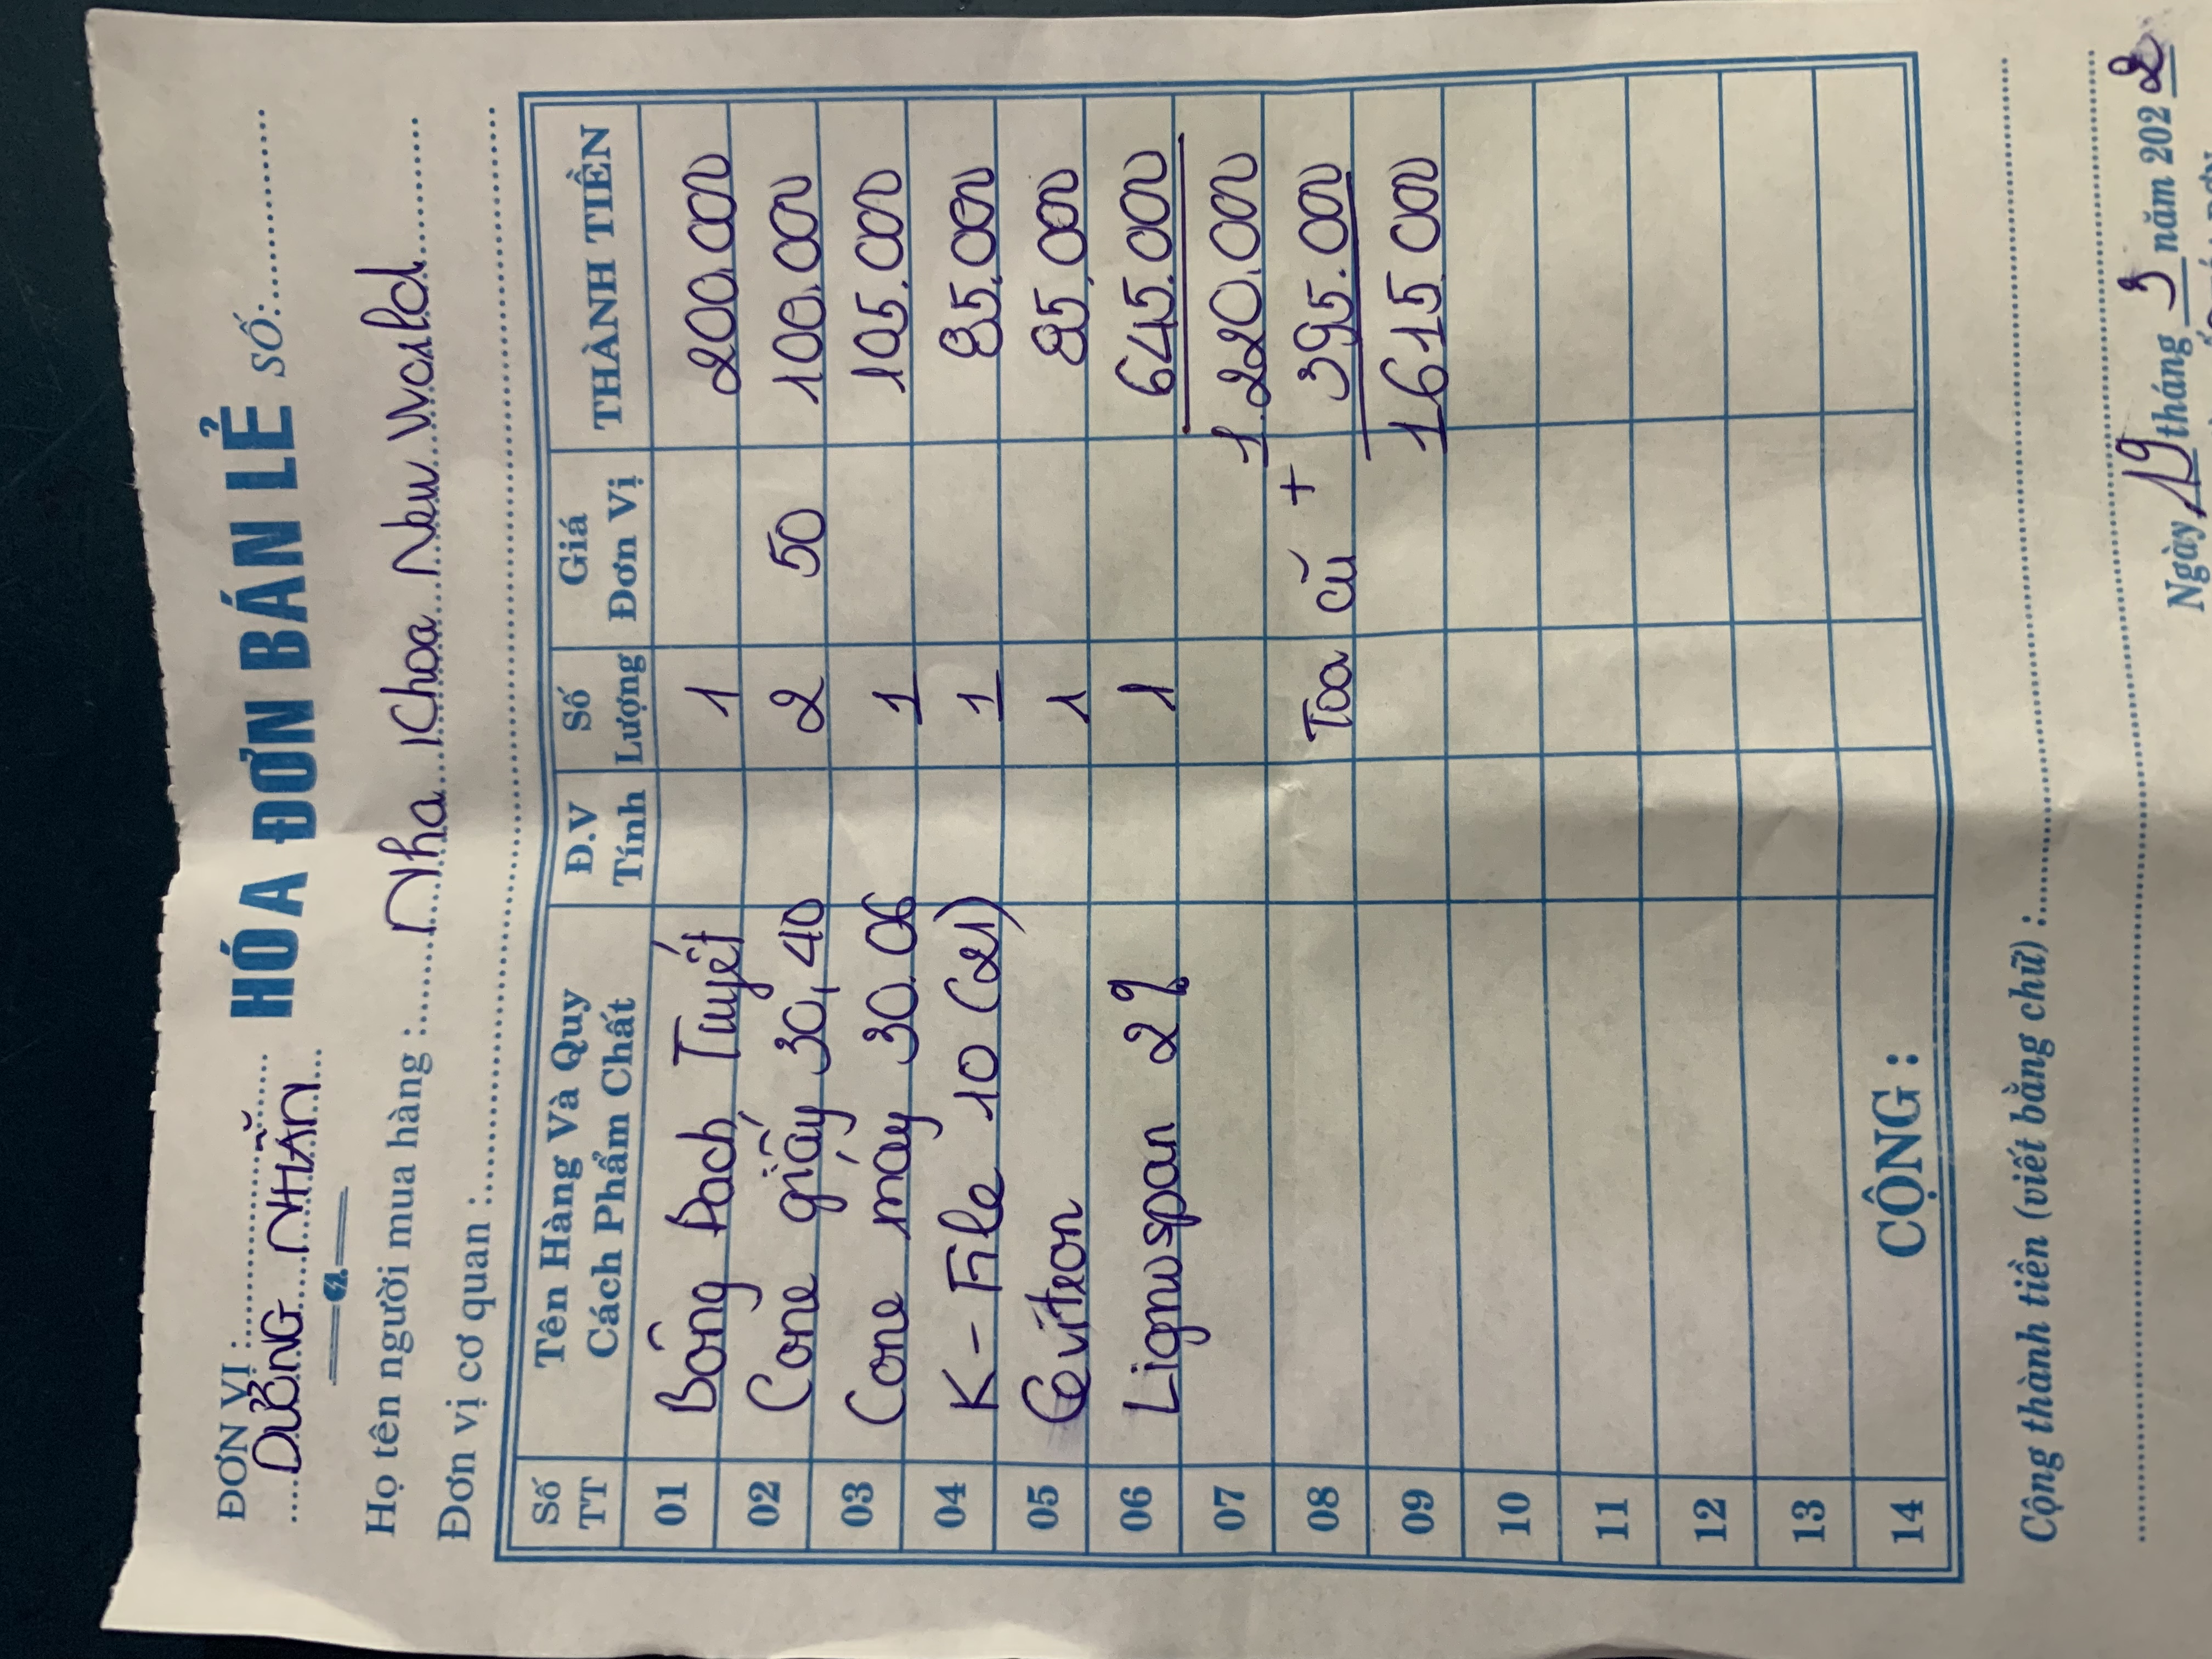 ĐƠN VỊ :
DƯỠNG NHẪN
HÓA ĐƠN BÁN LẺ SỐ:
Họ tên người mua hàng : Nha Khoa New World
Đơn vị cơ quan :
Số TT Tên Hàng Và Quy Cách Phẩm Chất Đ.V Tính Số Lượng Giá Đơn Vị THÀNH TIỀN
01 Bông Bạch Tuyết 1 200.000
02 Cone giấy 30, 40 2 50 100.000
03 Cone máy 30.06 1 105.000
04 K-File 10 (21) 1 85.000
05 Cevitron 1 85.000
06 Lignospan 2% 1 645.000
07 1.220.000
08 Toa cũ + 395.000
09 1615.000
10
11
12
13
14 CỘNG :
Cộng thành tiền (viết bằng chữ) :
Ngày 19 tháng 3 năm 2022